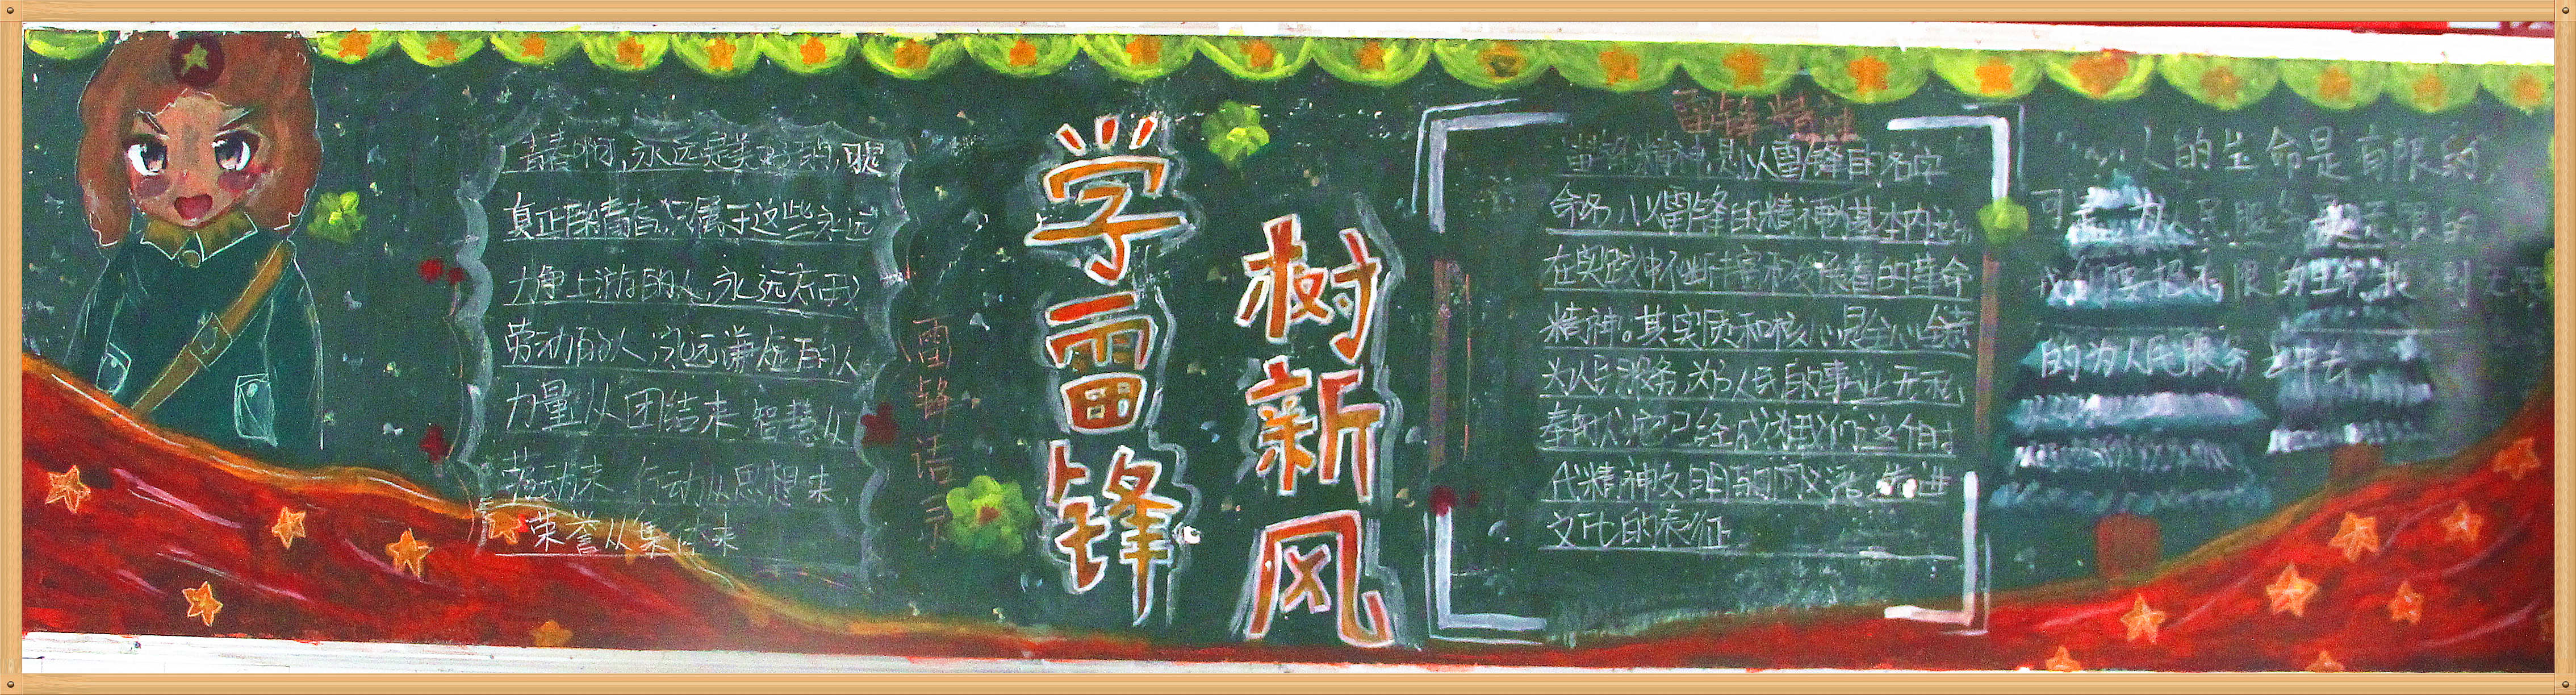 青春啊,永远是美好的,可是
真正的青春,只属于这些永远
力争上游的人,永远忘我
劳动的人,永远谦虚的人
力量从团结来 智慧从
劳动来 行动从思想来
荣誉从集体来
雷锋语录
学雷锋
树新风
雷锋精神
雷锋精神,是以雷锋的名字
命名,以雷锋的精神为基本内涵
在实践中不断丰富和发展着的革命
精神。其实质和核心是全心全意
为人民服务,为了人民的事业无私
奉献,它已经成为我们这个时
代精神文明的同义语,先进
文化的表征
人的生命是有限的,
可是,为人民服务是无限的
我们要把有限的生命投到无限
的为人民服务之中去